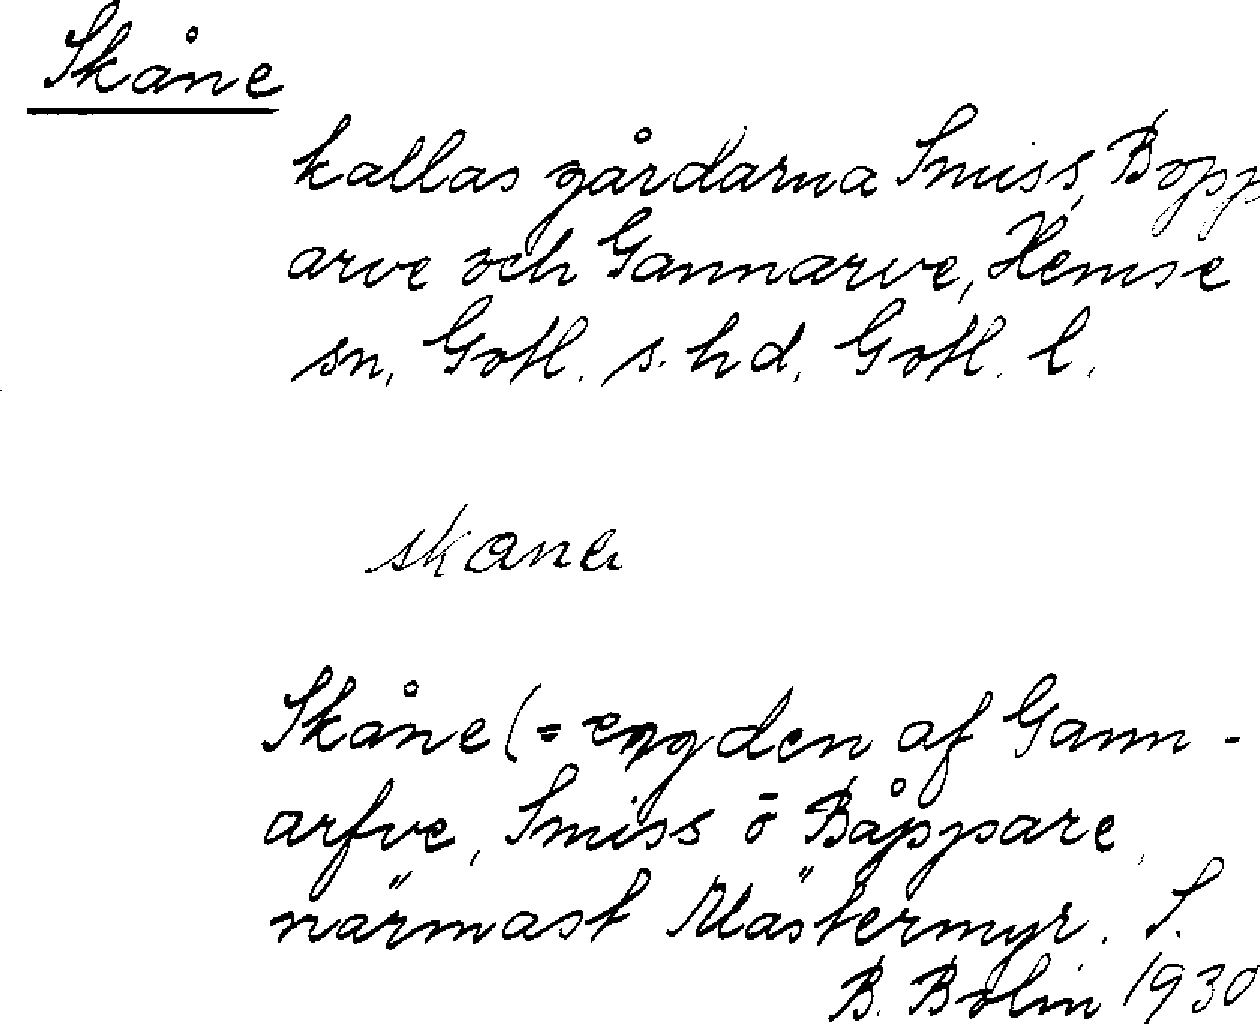 Skåne
kallas gårdarna Smiss, Bopp
arve och Gannarve, Hemse
sn, Gotl. s. hd, Gotl. l.
skåne
Skåne (= eng den af Gann-
arfve, Smiss ō Båppare,
närmast Mästermyr. S.
B. Bolin 1930